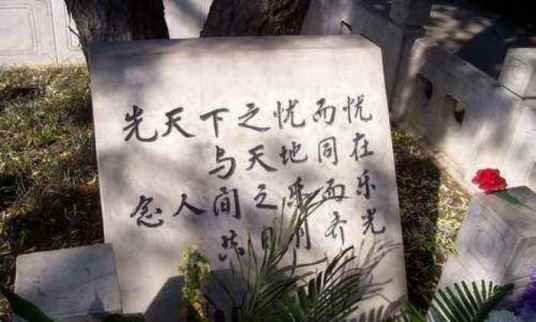 先天下之忧而忧
与天地同在
念人间之乐而乐
共日月齐光